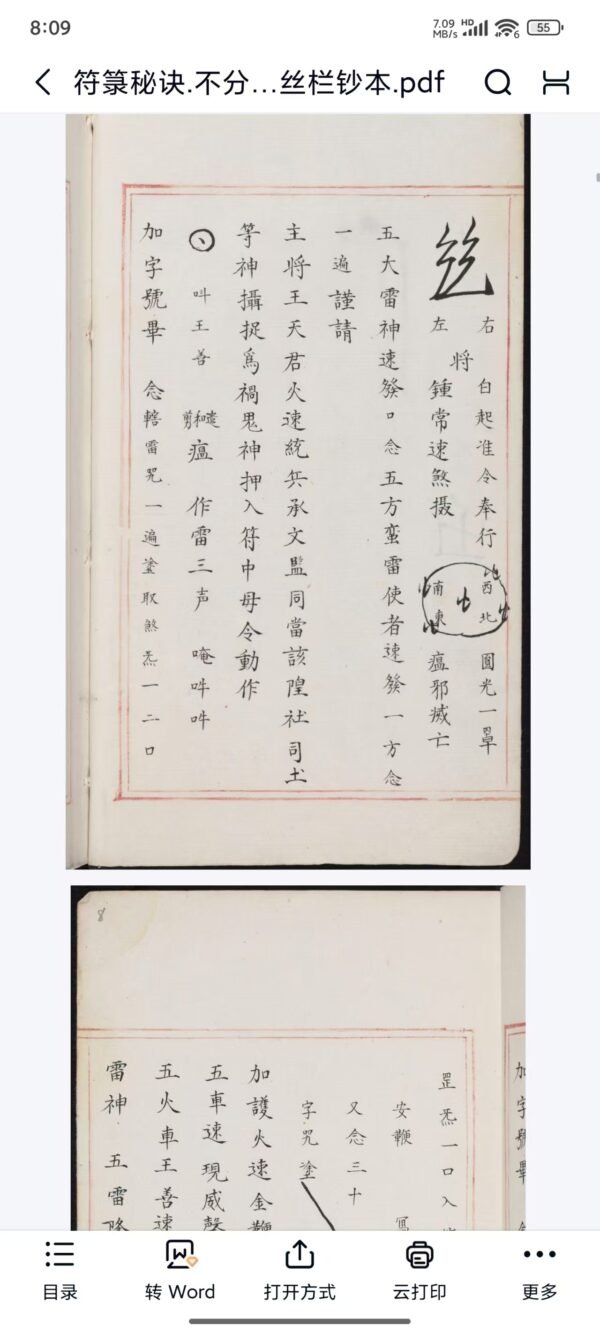 8:09
7.09 MB/s HD 6 55
符箓秘诀.不分…丝栏钞本.pdf
右 白起准令奉行 西北 圓光一罩
將
左 鍾常速煞摄 南東 瘟邪滅亡
五大雷神速發口念五方蛮雷使者速發一方念
一遍謹請
主將王天君火速統兵承文監同當該隍社司土
等神攝捉為禍鬼神押入符中毋令動作
叫王善 瘟 作雷三声 唵吽吽
加字號畢 念轄雷咒一遍塗取煞炁一二口
8
加字號畢
罡炁一口入
安鞭 寫
又念三十
字咒塗
加護火速金鞭
五車速現威聲
五火車王善速
雷神 五雷降
目录
转 Word
打开方式
云打印
更多